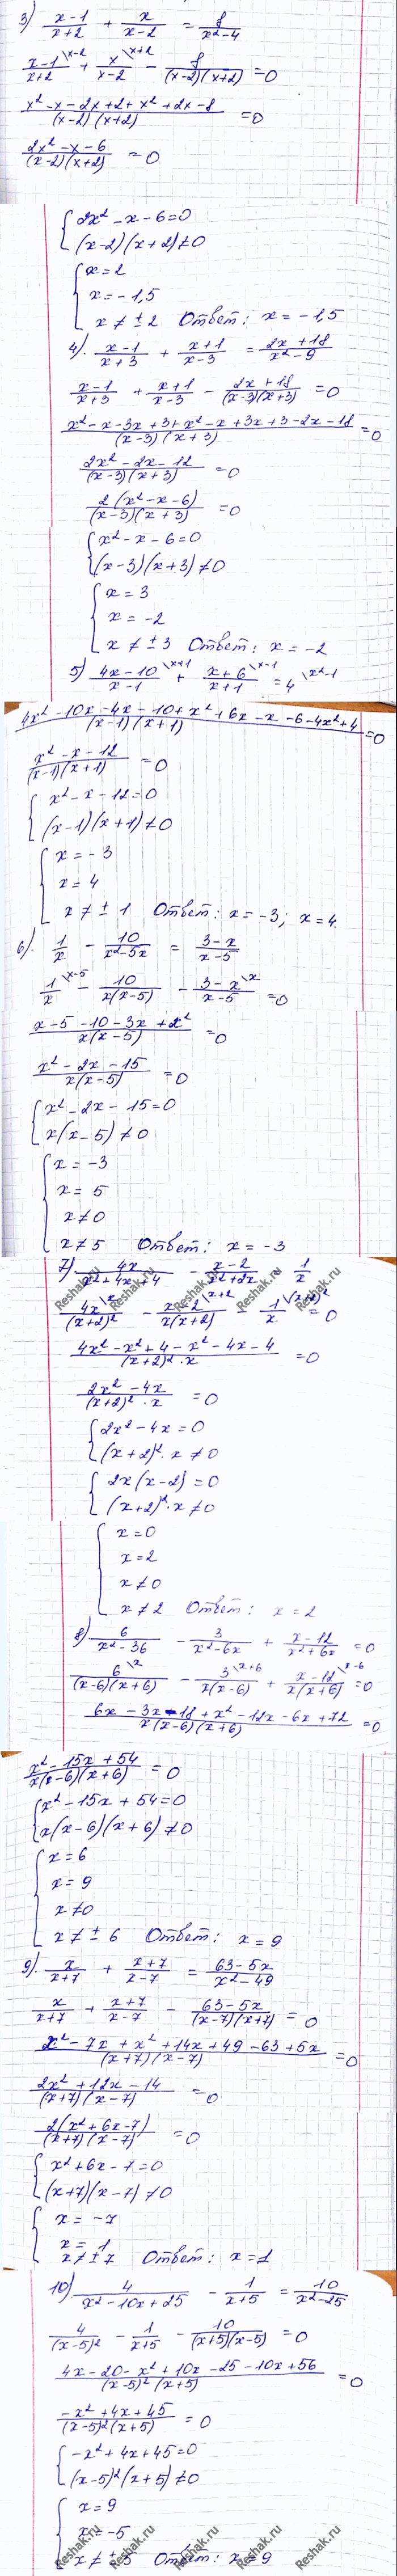 3) \frac{x-1}{x+2} + \frac{x}{x-2} = \frac{8}{x²-4}
\frac{x-1}{x+2}^{\x-2} + \frac{x}{x-2}^{\x+2} - \frac{8}{(x-2)(x+2)} = 0
\frac{x²-x-2x+2+x²+2x-8}{(x-2)(x+2)} = 0
\frac{2x²-x-6}{(x-2)(x+2)} = 0
{ 2x²-x-6=0
(x-2)(x+2)≠0
{ x=2
x=-1,5
x≠±2 Ответ: x=-1,5
4). \frac{x-1}{x+3} + \frac{x+1}{x-3} = \frac{2x+18}{x²-9}
\frac{x-1}{x+3} + \frac{x+1}{x-3} - \frac{2x+18}{(x-3)(x+3)} = 0
\frac{x²-x-3x+3+x²-x+3x+3-2x-18}{(x-3)(x+3)} = 0
\frac{2x²-2x-12}{(x-3)(x+3)} = 0
\frac{2(x²-x-6)}{(x-3)(x+3)} = 0
{ x²-x-6=0
(x-3)(x+3)≠0
{ x=3
x=-2
x≠±3 Ответ: x=-2
5) \frac{4x-10}{x-1}^{\x+1} + \frac{x+6}{x+1}^{\x-1} = 4^{\x²-1}
\frac{4x²-10x-4x-10+x²+6x-x-6-4x²+4}{(x-1)(x+1)} = 0
\frac{x²-x-12}{(x-1)(x+1)} = 0
{ x²-x-12=0
(x-1)(x+1)≠0
{ x=-3
x=4
x≠±1 Ответ: x=-3; x=4.
6). \frac{1}{x} - \frac{10}{x²-5x} = \frac{3-x}{x-5}
\frac{1}{x}^{\x-5} - \frac{10}{x(x-5)} - \frac{3-x}{x-5}^{\x} = 0
\frac{x-5-10-3x+x²}{x(x-5)} = 0
\frac{x²-2x-15}{x(x-5)} = 0
{ x²-2x-15=0
x(x-5)≠0
{ x=-3
x=5
x≠0
x≠5 Ответ: x=-3
7) \frac{4x}{x²+4x+4} - \frac{x-2}{x²+2x} = \frac{1}{x}
\frac{4x}{(x+2)²}^{\x} - \frac{x-2}{x(x+2)}^{\x+2} - \frac{1}{x}^{\(x+2)²} = 0
\frac{4x²-x²+4-x²-4x-4}{(x+2)²·x} = 0
\frac{2x²-4x}{(x+2)²·x} = 0
{ 2x²-4x=0
(x+2)²·x≠0
{ 2x(x-2)=0
(x+2)²·x≠0
{ x=0
x=2
x≠0
x≠2 Ответ: x=2
8) \frac{6}{x²-36} - \frac{3}{x²-6x} + \frac{x-12}{x²+6x} = 0
\frac{6}{(x-6)(x+6)}^{\x} - \frac{3}{x(x-6)}^{\x+6} + \frac{x-12}{x(x+6)}^{\x-6} = 0
\frac{6x-3x-18+x²-12x-6x+72}{x(x-6)(x+6)} = 0
\frac{x²-15x+54}{x(x-6)(x+6)} = 0
{ x²-15x+54=0
x(x-6)(x+6)≠0
{ x=6
x=9
x≠0
x≠±6 Ответ: x=9
9). \frac{x}{x+7} + \frac{x+7}{x-7} = \frac{63-5x}{x²-49}
\frac{x}{x+7} + \frac{x+7}{x-7} - \frac{63-5x}{(x-7)(x+7)} = 0
\frac{x²-7x+x²+14x+49-63+5x}{(x+7)(x-7)} = 0
\frac{2x²+12x-14}{(x+7)(x-7)} = 0
\frac{2(x²+6x-7)}{(x+7)(x-7)} = 0
{ x²+6x-7=0
(x+7)(x-7)≠0
{ x=-7
x=1
x≠±7 Ответ: x=1
10) \frac{4}{x²-10x+25} - \frac{1}{x+5} = \frac{10}{x²-25}
\frac{4}{(x-5)²} - \frac{1}{x+5} - \frac{10}{(x+5)(x-5)} = 0
\frac{4x-20-x²+10x-25-10x+56}{(x-5)²(x+5)} = 0
\frac{-x²+4x+45}{(x-5)²(x+5)} = 0
{ -x²+4x+45=0
(x-5)²(x+5)≠0
{ x=9
x=-5
x≠±5 Ответ: x=9
Reshak.ru Reshak.ru Reshak.ru Reshak.ru Reshak.ru